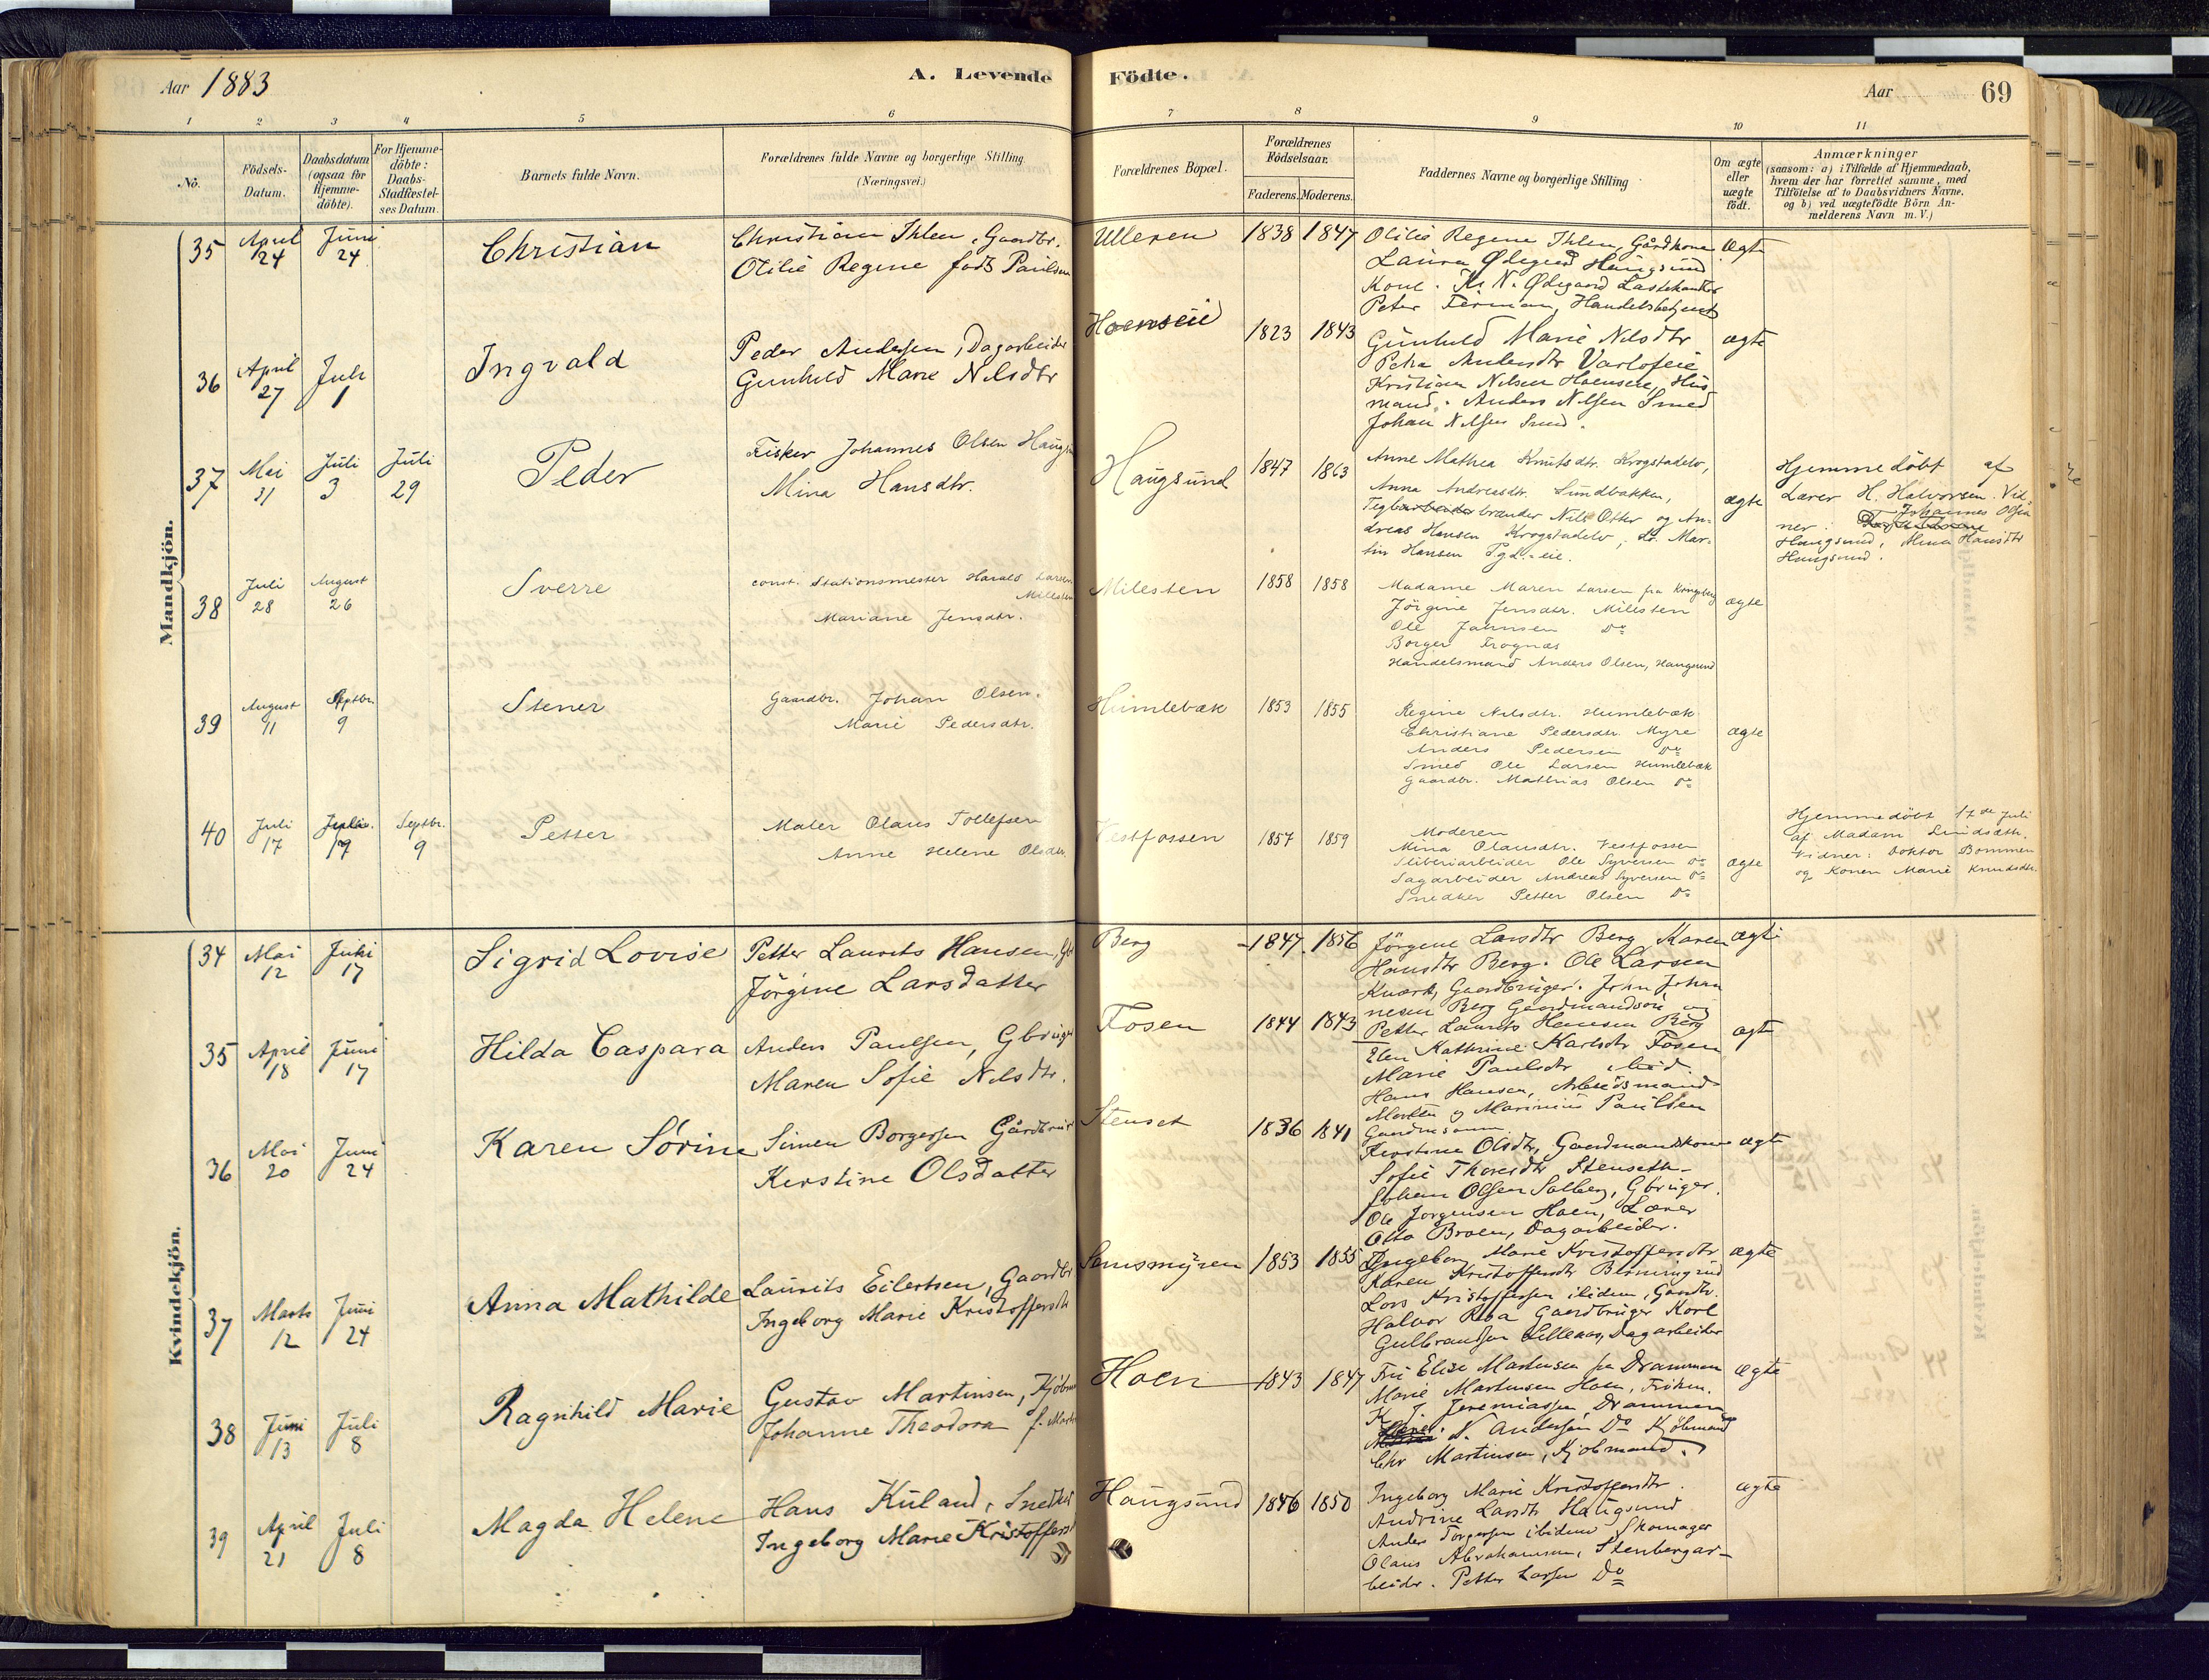 Aar 1883
A. Levende
Födte.
Aar
69
1 2 3 4 5 6 7 8 9 10 11
No.
Födsels-Datum.
Daabsdatum (ogsaa for Hjemme-döbte).
For Hjemme-döbte: Daabs-Stadfæstel-ses Datum.
Barnets fulde Navn.
Forældrenes fulde Navne og borgerlige Stilling (Næringsvei.)
Forældrenes Bopæl.
Forældrenes Födselsaar.
Faderens. Moderens.
Faddernes Navne og borgerlige Stilling
Om ægte eller uægte födt.
Anmærkninger
(saasom: a) i Tilfælde af Hjemmedaab,
hvem der har forrettet samme, med
Tilföielse af to Daabsvidners Navne.
og b) ved uægtefödte Börn An-
melderens Navn m. V.)
Mandkjön.
35 April 24 Juni 24 Christian
Christian Ihlen, Gaardbr.
Otilie Regine født Paulsen
Ulleren 1838 1847
Otilie Regine Ihlen, Gårdkone
Laura Ødegaard Haugsund
Kone. Kr. N. Ødegaard Lastehandler
Peter Firman, Handelsbetjent
ægte
36 April 27 Juli 1 Ingvald
Peder Andersen, Dagarbeider
Gunhild Marie Nilsdtr
Hoenseie 1823 1843
Gunhild Marie Nilsdtr
Petra Andersdtr Varlofeie
Kristian Nilsen Hoenseie, Hus
mand. Anders Nilsen Smed
Johan Nilsen Smed.
ægte
37 Mai 31 Juli 3 Juli 29 Peder
Fisker Johannes Olsen Haugsu
Mina Hansdtr.
Haugsund 1847 1863
Anne Mathea Knutsdtr. Krogstadelv,
Anna Andreasdtr. Sundbakken,
Teglbrænder Nils Otter og An-
dreas Hansen Krogstadelv, Mar-
tin Hansen
ægte
Hjemmedöbt af
Lærer H. Halvorsen. Vid-
ner: Johannes Olsen
Haugsund, Mina Hansdtr
Haugsund.
38 Juli 28 August 26 Sverre
const. Stationsmester Harald Larsen
Milesten
Mariane Jensdtr.
Milesten 1858 1858
Madame Maren Larsen fra Kongsberg
Jörgine Jensdtr. Milesten
Ole Johnsen Do
Borger Frognæs
Handelsmand Anders Olsen, Haugsund
ægte
39 August 11 Septbr. 9 Stener
Gaardbr. Johan Olsen.
Marie Pedersdtr.
Humlebæk 1853 1855
Regine Nilsdtr. Humlebæk
Christiane Pedersdtr. Myre
Anders Pedersen Do
Smed Ole Larsen Humlebæk
Gaardbr. Mathias Olsen Do
ægte
40 Juli 17 Juli 19 Septbr. 9 Petter
Maler Olaus Tollefsen
Anne Helene Olsdtr.
Vestfossen 1857 1859
Moderen
Mina Olausdtr. Vestfossen
Sliberiarbeider Ole Syversen Do
Sagarbeider Andreas Syversen Do
Snedker Petter Olsen Do
ægte
Hjemmedöbt 17de Juli
af Madam Lindsæth.
Vidner: Doktor Bommen
og Konen Marie Knudsdtr.
Kvindekjön.
34 Mai 12 Juni 17 Sigrid Lovise
Petter Laurits Hansen, Gbr
Jörgine Larsdatter
Berg 1847 1856
Jörgine Larsdtr Berg Karen
Hansdtr Berg. Ole Larsen
Knærk, Gaardbruger. John Johan
nesen Berg Gaardmandssön og
Petter Laurits Hansen Berg
ægte
35 April 18 Juni 17 Hilda Caspara
Anders Paulsen, Gbruger
Maren Sofie Nilsdtr.
Fosen 1844 1843
Elen Kathrine Karlsdtr Fosen
Marie Paulsdtr ibid.
Hans Hansen, Arbeidsmand
Morten og Marinius Paulsen
ægte
36 Mai 20 Juni 24 Karen Sörine
Simen Borgersen Gårdbruger
Kerstine Olsdatter
Stenset 1836 1841
Kerstine Olsdtr, Gaardmandskone
Sofie Thoresdtr Stenseth
Johan Olsen Solberg, Gbruger.
Ole Jorgensen Hoen, Lærer
Otto Broen, Dagarbeider.
ægte
37 Marts 12 Juni 24 Anna Mathilde
Laurits Eilertsen, Gaardbr
Ingeborg Marie Kristoffersdtr
Sandsmyren 1853 1855
Ingeborg Marie Kristoffersdtr
Karen Kristoffersdtr
Lars Kristoffersen ibidem, Gaardbr.
Halvor Gaardbruger Karl
Gulbrandsen Lilleaas, Dagarbeider
ægte
38 Juni 13 Juli 8 Ragnhild Marie
Gustav Martinsen, Kjöbm
Johanne Theodora f. Mart
Hoen 1843 1847
Fru Elise Martinsen fra Drammen
Marie Martinsen Hoen, Fröken.
K. J. Jeremiassen, Drammen
N. Andersen Do Kjöbmand
Chr Martinsen, Kjöbmand.
ægte
39 April 21 Juli 8 Magda Helene
Hans Kuland, Snedker
Ingeborg Marie Kristoffersd
Haugsund 1846 1850
Ingeborg Marie Kristoffersdtr.
Andrine Larsdtr Haugsund
Anders Torgersen ibidem Skomager
Olaus Abrahamsen, Stenbergar-
beider. Petter Larsen Do
ægte